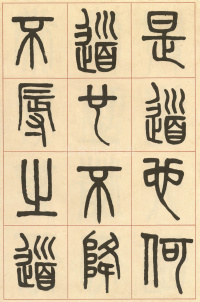 是道也何
道也不降
不辱之道